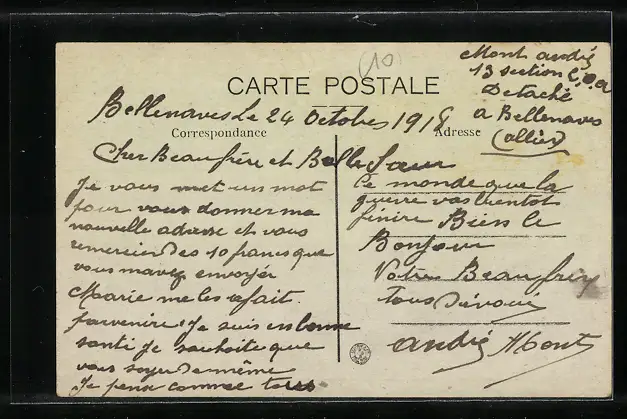 (10)
Mont andré
13 section C.O.A
Detaché
a Bellenaves
(allier)
CARTE POSTALE
Bellenaves Le 24 Octobre 1918
Correspondance
Adresse
Cher Beaufrère et Belle Sœur
Je vous met un mot
pour vous donner ma
nouvelle adresse et vous
remercier des 10 francs que
vous mavez envoyér
Marie me les a fait
parvenire. Je suis en bonne
santé je souhaite que
vous soyer de même
Je pense comme tous
Le monde que la
guerre vas bientot
finire Bien le
Bonjour
Votre Beaufrèr
tous dévoué
andré Mont